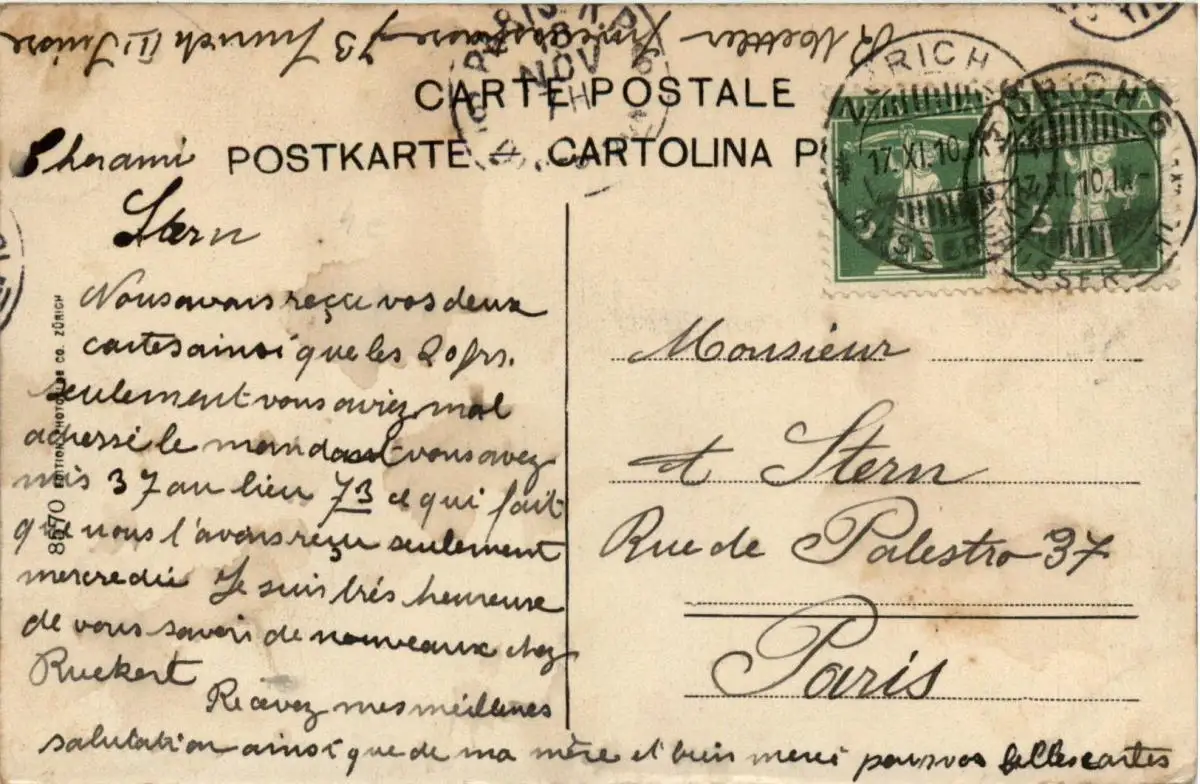 CARTE POSTALE
POSTKARTE – CARTOLINA P
PARIS
18
NOV
7H
ZÜRICH
17.XI.10.IX
ZÜRICH 6
17.XI.10.IX–
5
5
Moettler 73 Zurich III Suisse
Cher ami
Stern
Nous avons reçu vos deux
cartes ainsi que les 20 frs.
seulement vous aviez mal
adressé le mandat vous avez
mis 37 au lieu 73 ce qui fait
que nous l'avons reçu seulement
mercredi Je suis très heureuse
de vous savoir de nouveaux chez
Ruckert
Recevez mes meillenes
salutation ainsi que de ma mère et bien merci pour vos belles cartes
8670 EDITION PHOTOGLOB CO. ZÜRICH
Monsieur
A Stern
Rue de Palestro 37
Paris